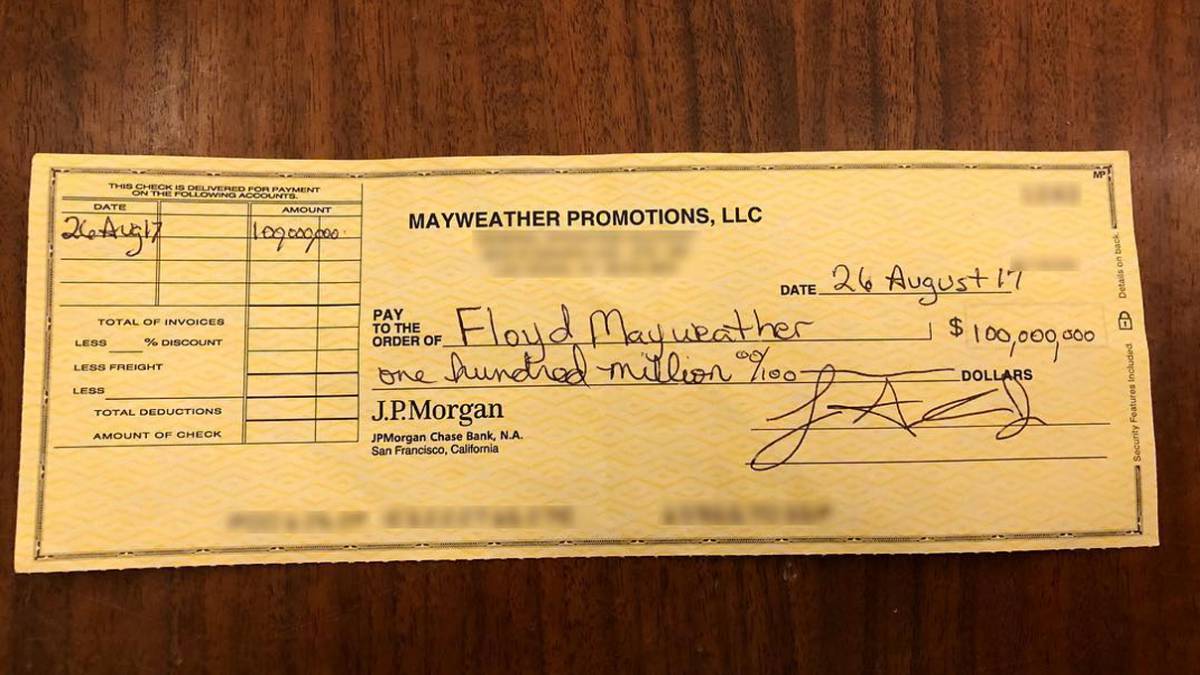 THIS CHECK IS DELIVERED FOR PAYMENT
ON THE FOLLOWING ACCOUNTS.
DATE AMOUNT
26 Aug 17 100,000,000
TOTAL OF INVOICES
LESS ____ % DISCOUNT
LESS FREIGHT
LESS
TOTAL DEDUCTIONS
AMOUNT OF CHECK
MP
MAYWEATHER PROMOTIONS, LLC
DATE 26 August 17
PAY
TO THE
ORDER OF Floyd Mayweather $ 100,000,000
one hundred million 00/100 DOLLARS
J.P.Morgan
JPMorgan Chase Bank, N.A.
San Francisco, California
Security Features Included. Details on back.